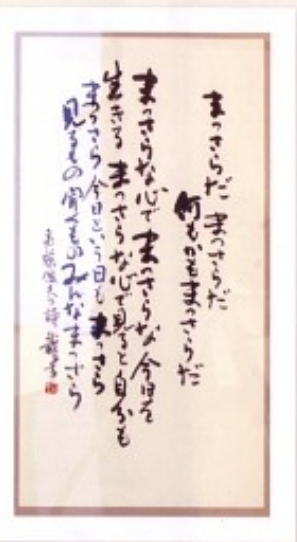 まっさらだ まっさらだ
何もかもまっさらだ
まっさらな心で まっさらな今日を
生きる まっさらな心で見ると 自分も
まっさら 今日という日も まっさら
見るもの 聞くもの みんなまっさら